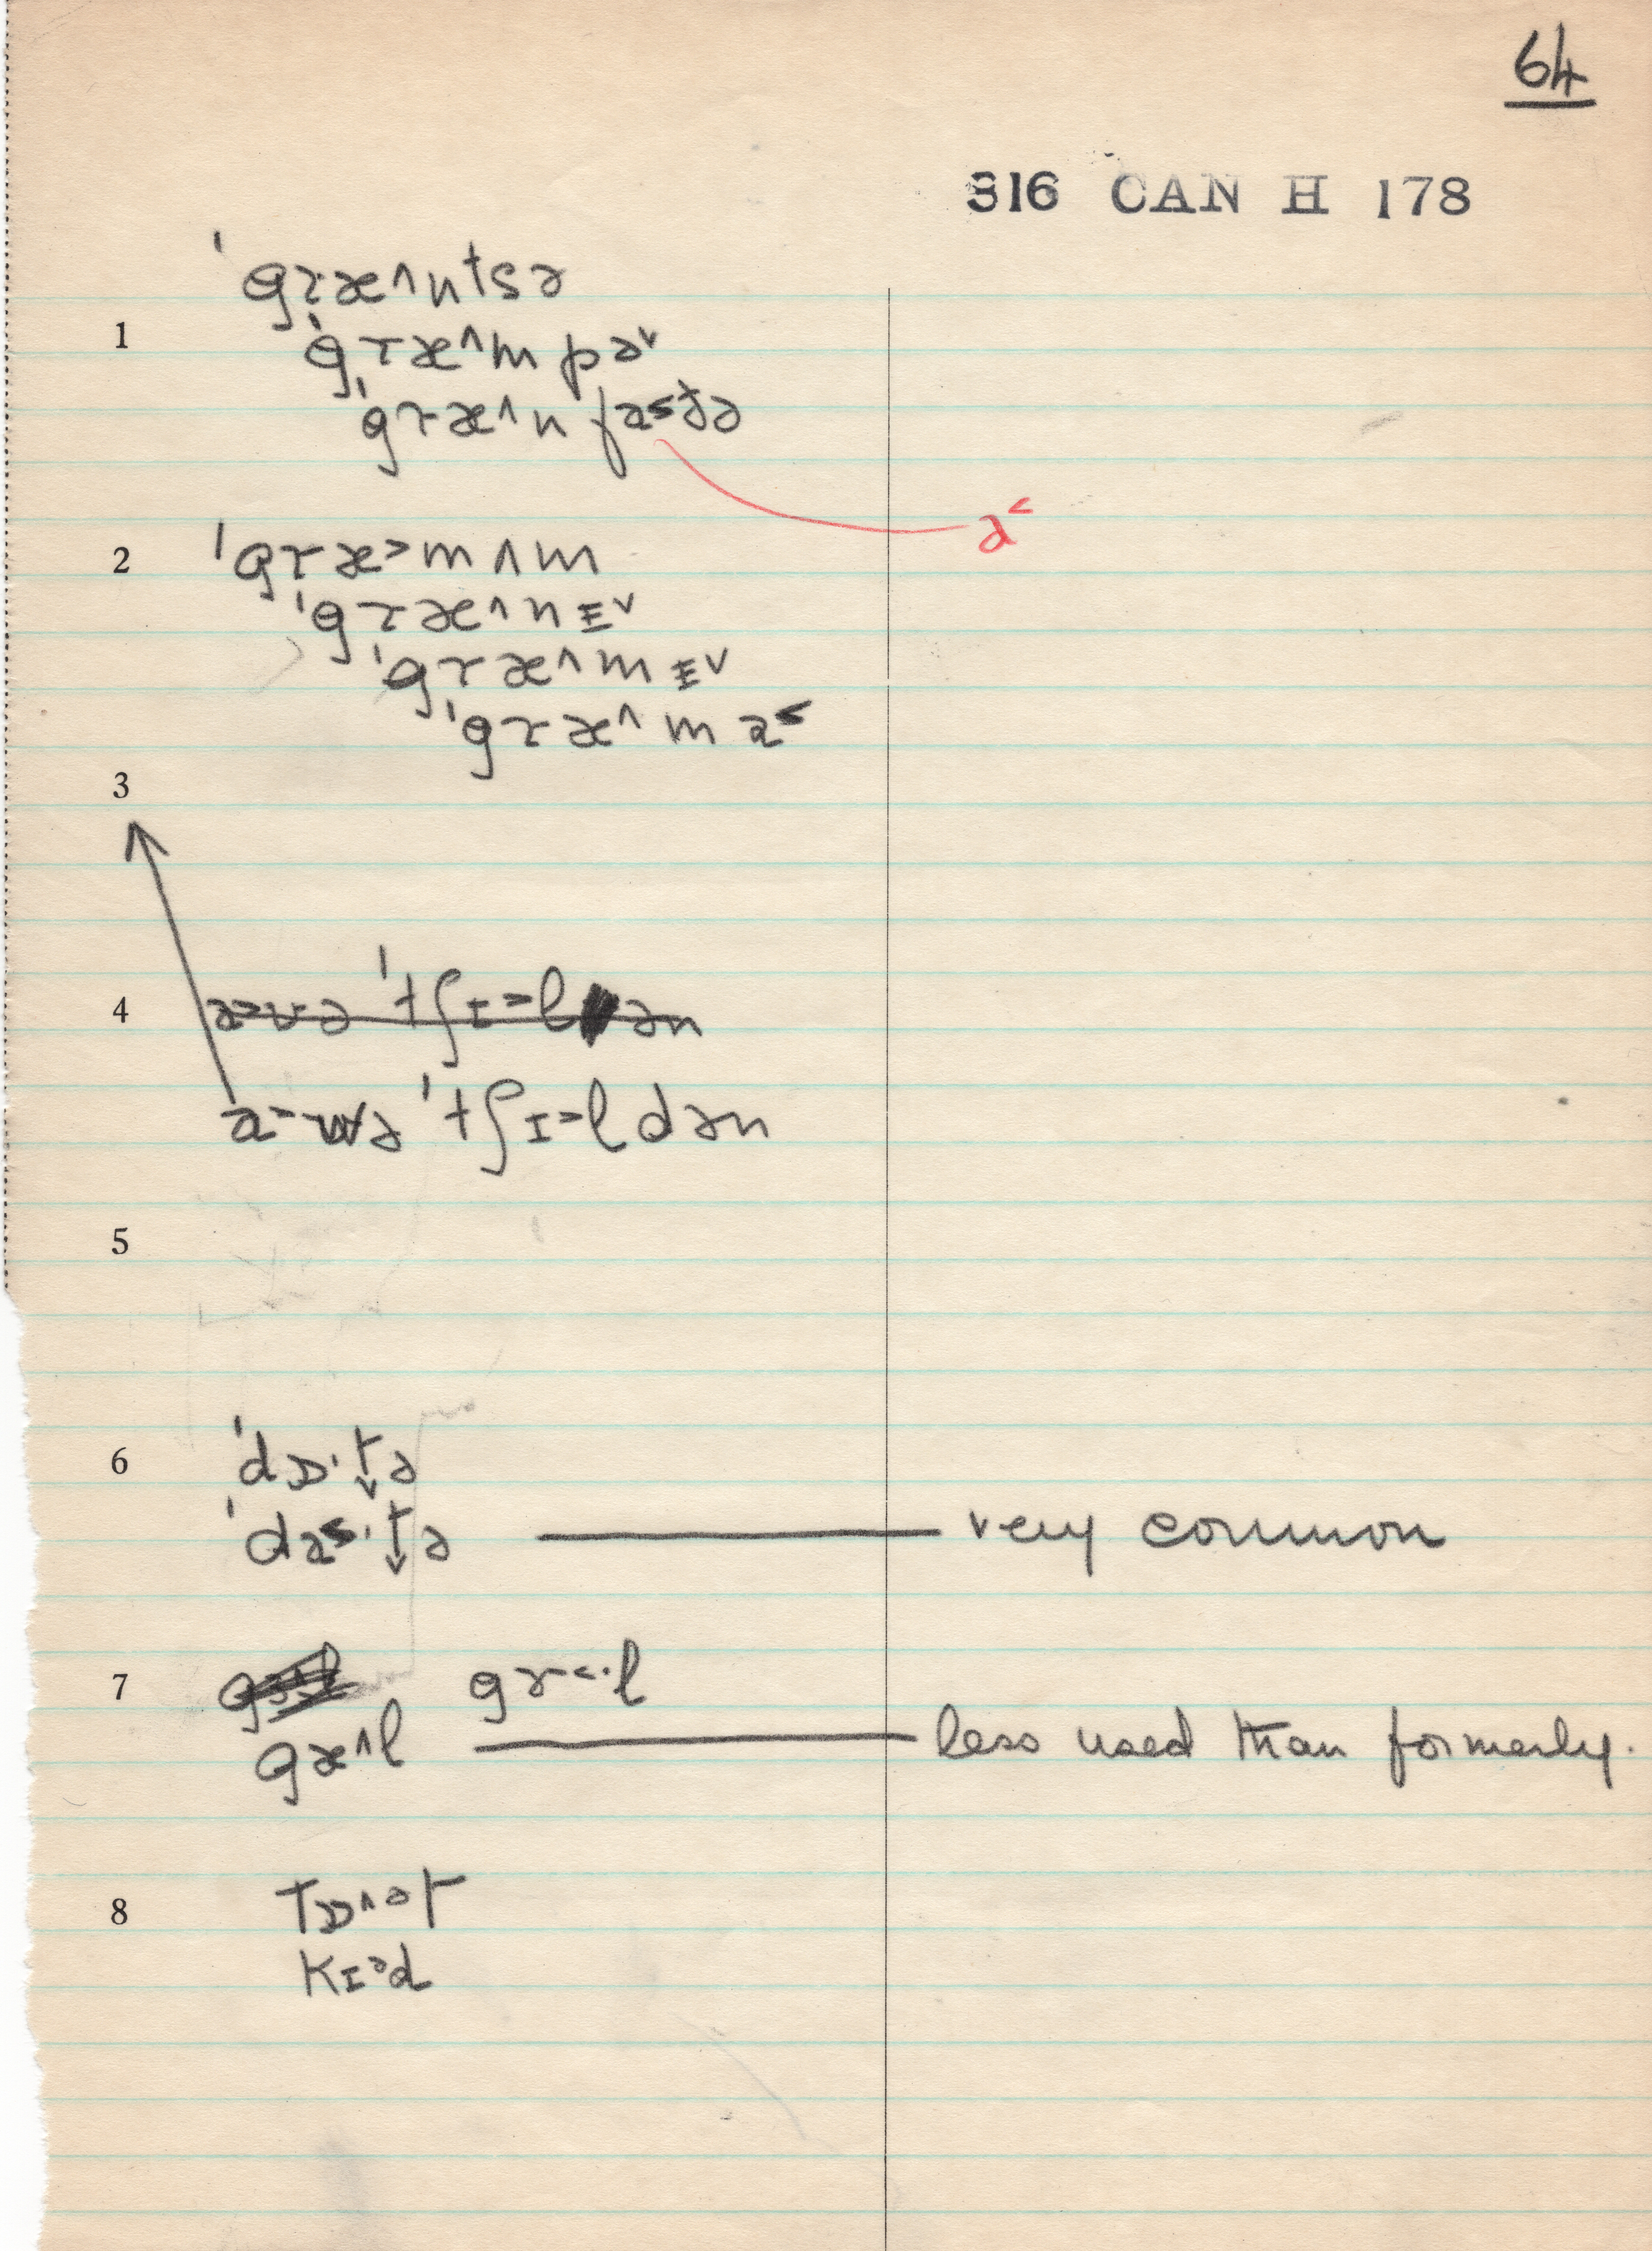 64
316 CAN H 178
ˈgræ^ntsə
1 ˈgræ^mpə˅
ˈgræ^nfa˂ðə
a˂
2 ˈgræ˃mʌm
ˈgræ^nɪ˅
ˈgræ^mɪ˅
ˈgræ^ma˂
3
4 a˃və ˈtʃɪ˃lən
a˃wə ˈtʃɪ˃ldən
5
6 ˈdɒ·t̬ə
ˈda˂·t̬ə very common
7 gɤ˂·l
gæ^l less used than formerly.
8 tɒ^ət
kɪ˃d